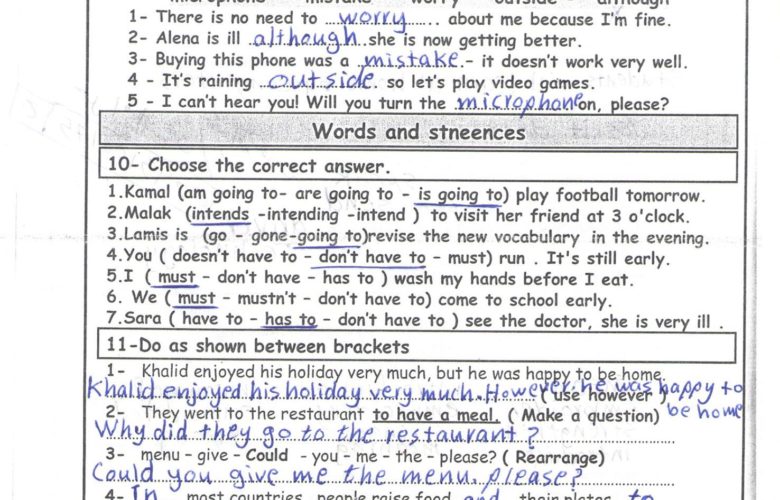 microphone mistake worry outside although
1- There is no need to ...worry........ about me because I'm fine.
2- Alena is ill ..although..she is now getting better.
3- Buying this phone was a ..mistake..- it doesn't work very well.
4 - It's raining ..outside.. so let's play video games.
5 - I can't hear you! Will you turn the .microphone on, please?
Words and stneences
10- Choose the correct answer.
1.Kamal (am going to- are going to - is going to) play football tomorrow.
2.Malak (intends -intending -intend ) to visit her friend at 3 o'clock.
3.Lamis is (go - gone-going to)revise the new vocabulary in the evening.
4.You ( doesn't have to - don't have to - must) run . It's still early.
5.I ( must - don't have - has to ) wash my hands before I eat.
6. We ( must - mustn't - don't have to) come to school early.
7.Sara ( have to - has to - don't have to ) see the doctor, she is very ill .
11-Do as shown between brackets
1- Khalid enjoyed his holiday very much, but he was happy to be home.
Khalid enjoyed his holiday very much. However, he was happy to be home
( use however )
2- They went to the restaurant to have a meal. ( Make a question)
Why did they go to the restaurant ?
3- menu - give - Could - you - me - the - please? ( Rearrange)
Could you give me the menu, please?
4- In most countries, people raise food and their plates to